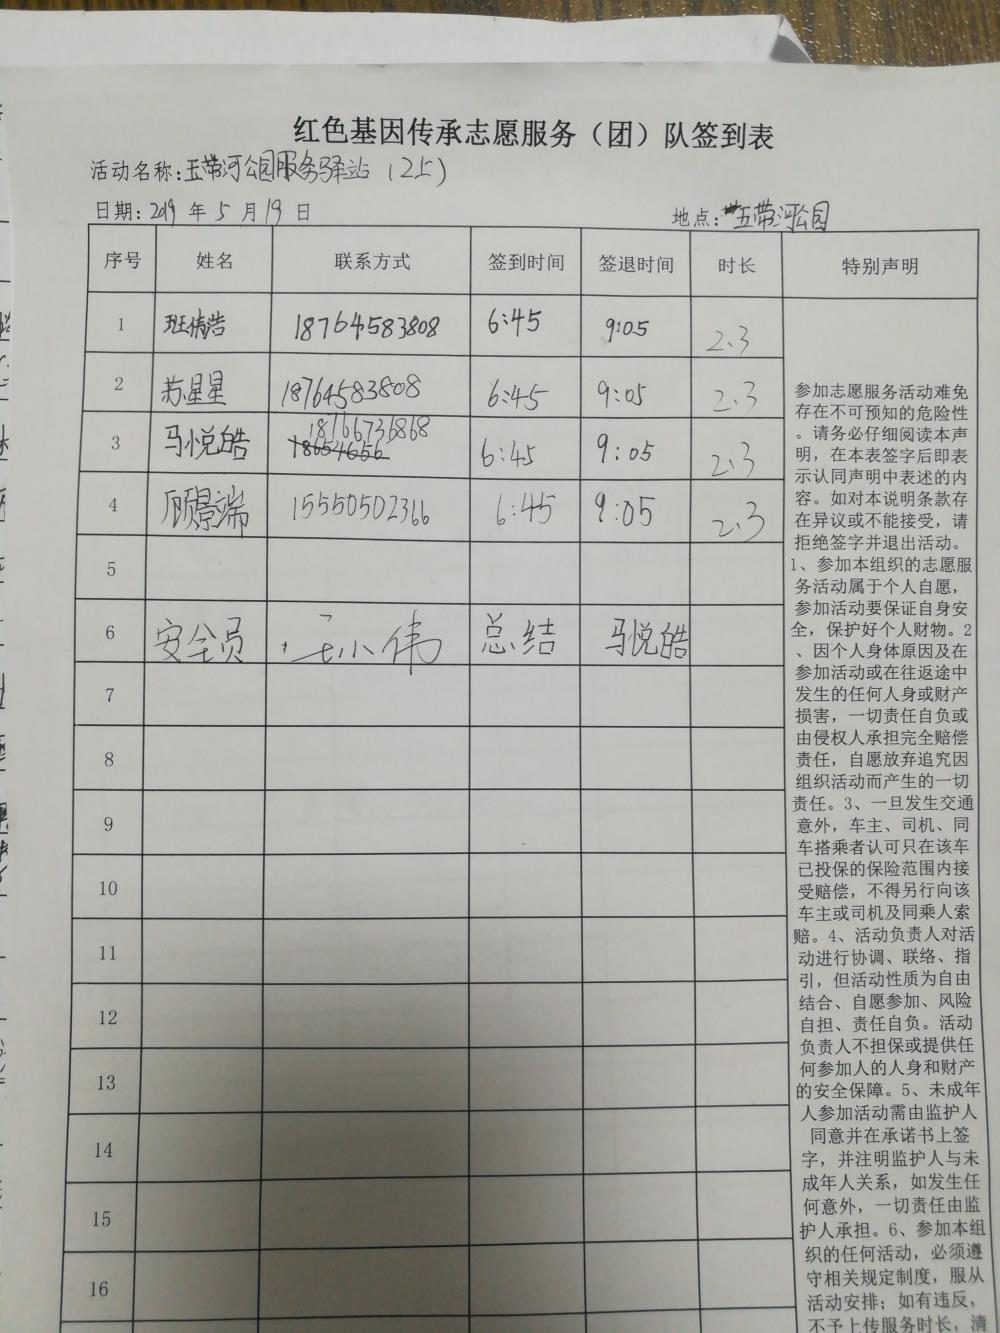 红色基因传承志愿服务（团）队签到表
活动名称:五带河公园服务驿站（25）
日期: 2019 年 5 月 19 日 地点: 五带河公园
序号 姓名 联系方式 签到时间 签退时间 时长 特别声明
1 班倩浩 18764583808 6:45 9:05 2.3
2 苏星星 18764583808 6:45 9:05 2.3
3 马悦皓 18766736868 6:45 9:05 2.3
4 顾景端 15550502366 6:45 9:05 2.3
5
6 安全员 王小伟 总结 马悦皓
7
8
9
10
11
12
13
14
15
16
参加志愿服务活动难免
存在不可预知的危险性
。请务必仔细阅读本声
明，在本表签字后即表
示认同声明中表述的内
容。如对本说明条款存
在异议或不能接受，请
拒绝签字并退出活动。
1、参加本组织的志愿服
务活动属于个人自愿，
参加活动要保证自身安
全，保护好个人财物。2
、因个人身体原因及在
参加活动或在往返途中
发生的任何人身或财产
损害，一切责任自负或
由侵权人承担完全赔偿
责任，自愿放弃追究因
组织活动而产生的一切
责任。3、一旦发生交通
意外，车主、司机、同
车搭乘者认可只在该车
已投保的保险范围内接
受赔偿，不得另行向该
车主或司机及同乘人索
赔。4、活动负责人对活
动进行协调、联络、指
引，但活动性质为自由
结合、自愿参加、风险
自担、责任自负。活动
负责人不担保或提供任
何参加人的人身和财产
的安全保障。5、未成年
人参加活动需由监护人
同意并在承诺书上签
字，并注明监护人与未
成年人关系，如发生任
何意外，一切责任由监
护人承担。6、参加本组
织的任何活动，必须遵
守相关规定制度，服从
活动安排；如有违反，
不予上传服务时长，清